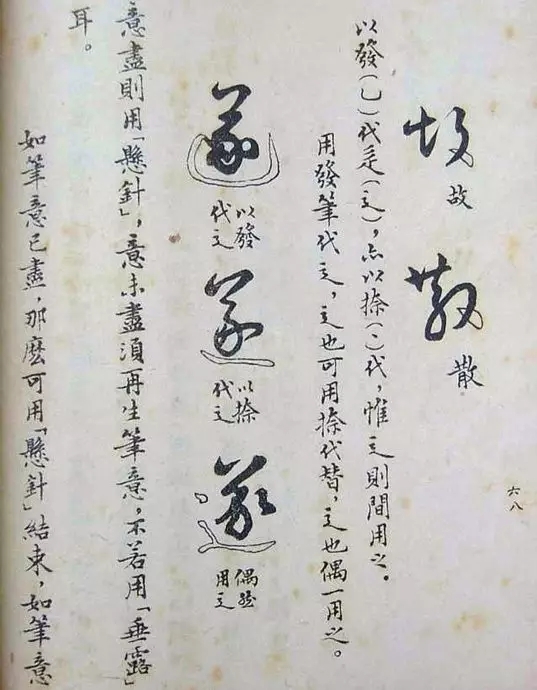 六八
故 故
散 散
以發(乙)代辵(辶),亦以捺(㇏)代,惟辶則間用之。
用發筆代辶,辶也可用捺代替,辶也偶一用之。
遂 以發代辶
遂 以捺代辶
遂 偶然用辶
意盡則用「懸針」,意未盡須再生筆意,不若用「垂露」
耳。
如筆意已盡,那麼可用「懸針」結束,如筆意